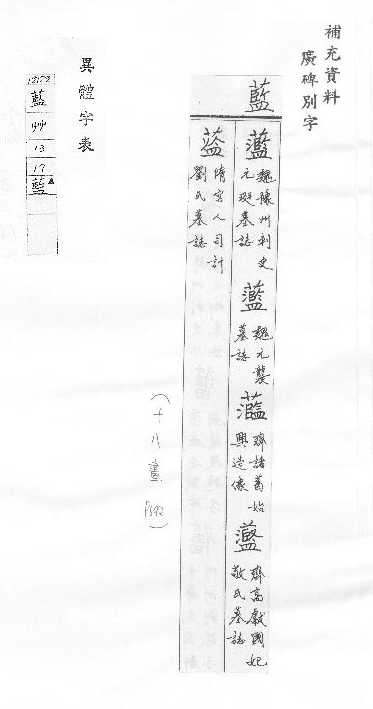 補充資料
廣碑別字
藍
魏陳州刺史
元琁墓誌
魏元襲
墓誌
齊諸葛始
興造像
齊高獻國妃
敬氏墓誌
隋宮人司計
劉氏墓誌
(十八畫
P392)
異體字表
藍
艸
13
17
藍